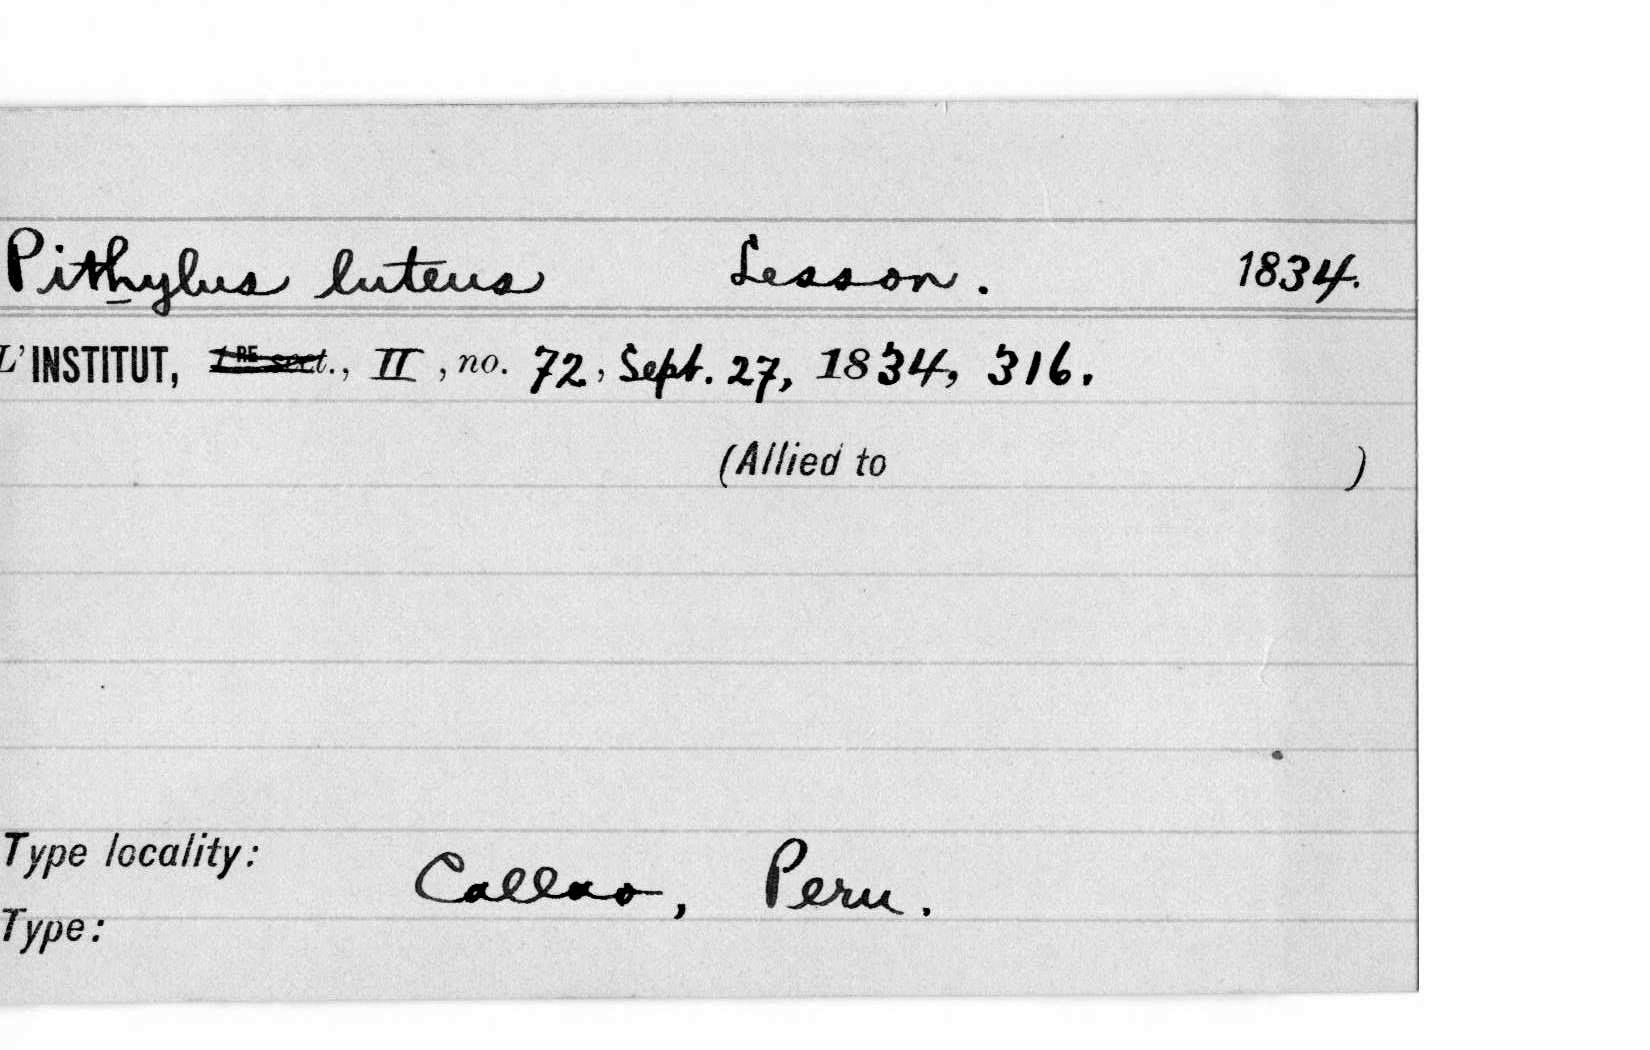 Pithylus luteus Lesson. 1834.
L'INSTITUT, 1RE sect., II, no. 72, Sept. 27, 1834, 316.
(Allied to )
Type locality: Callao, Peru.
Type: